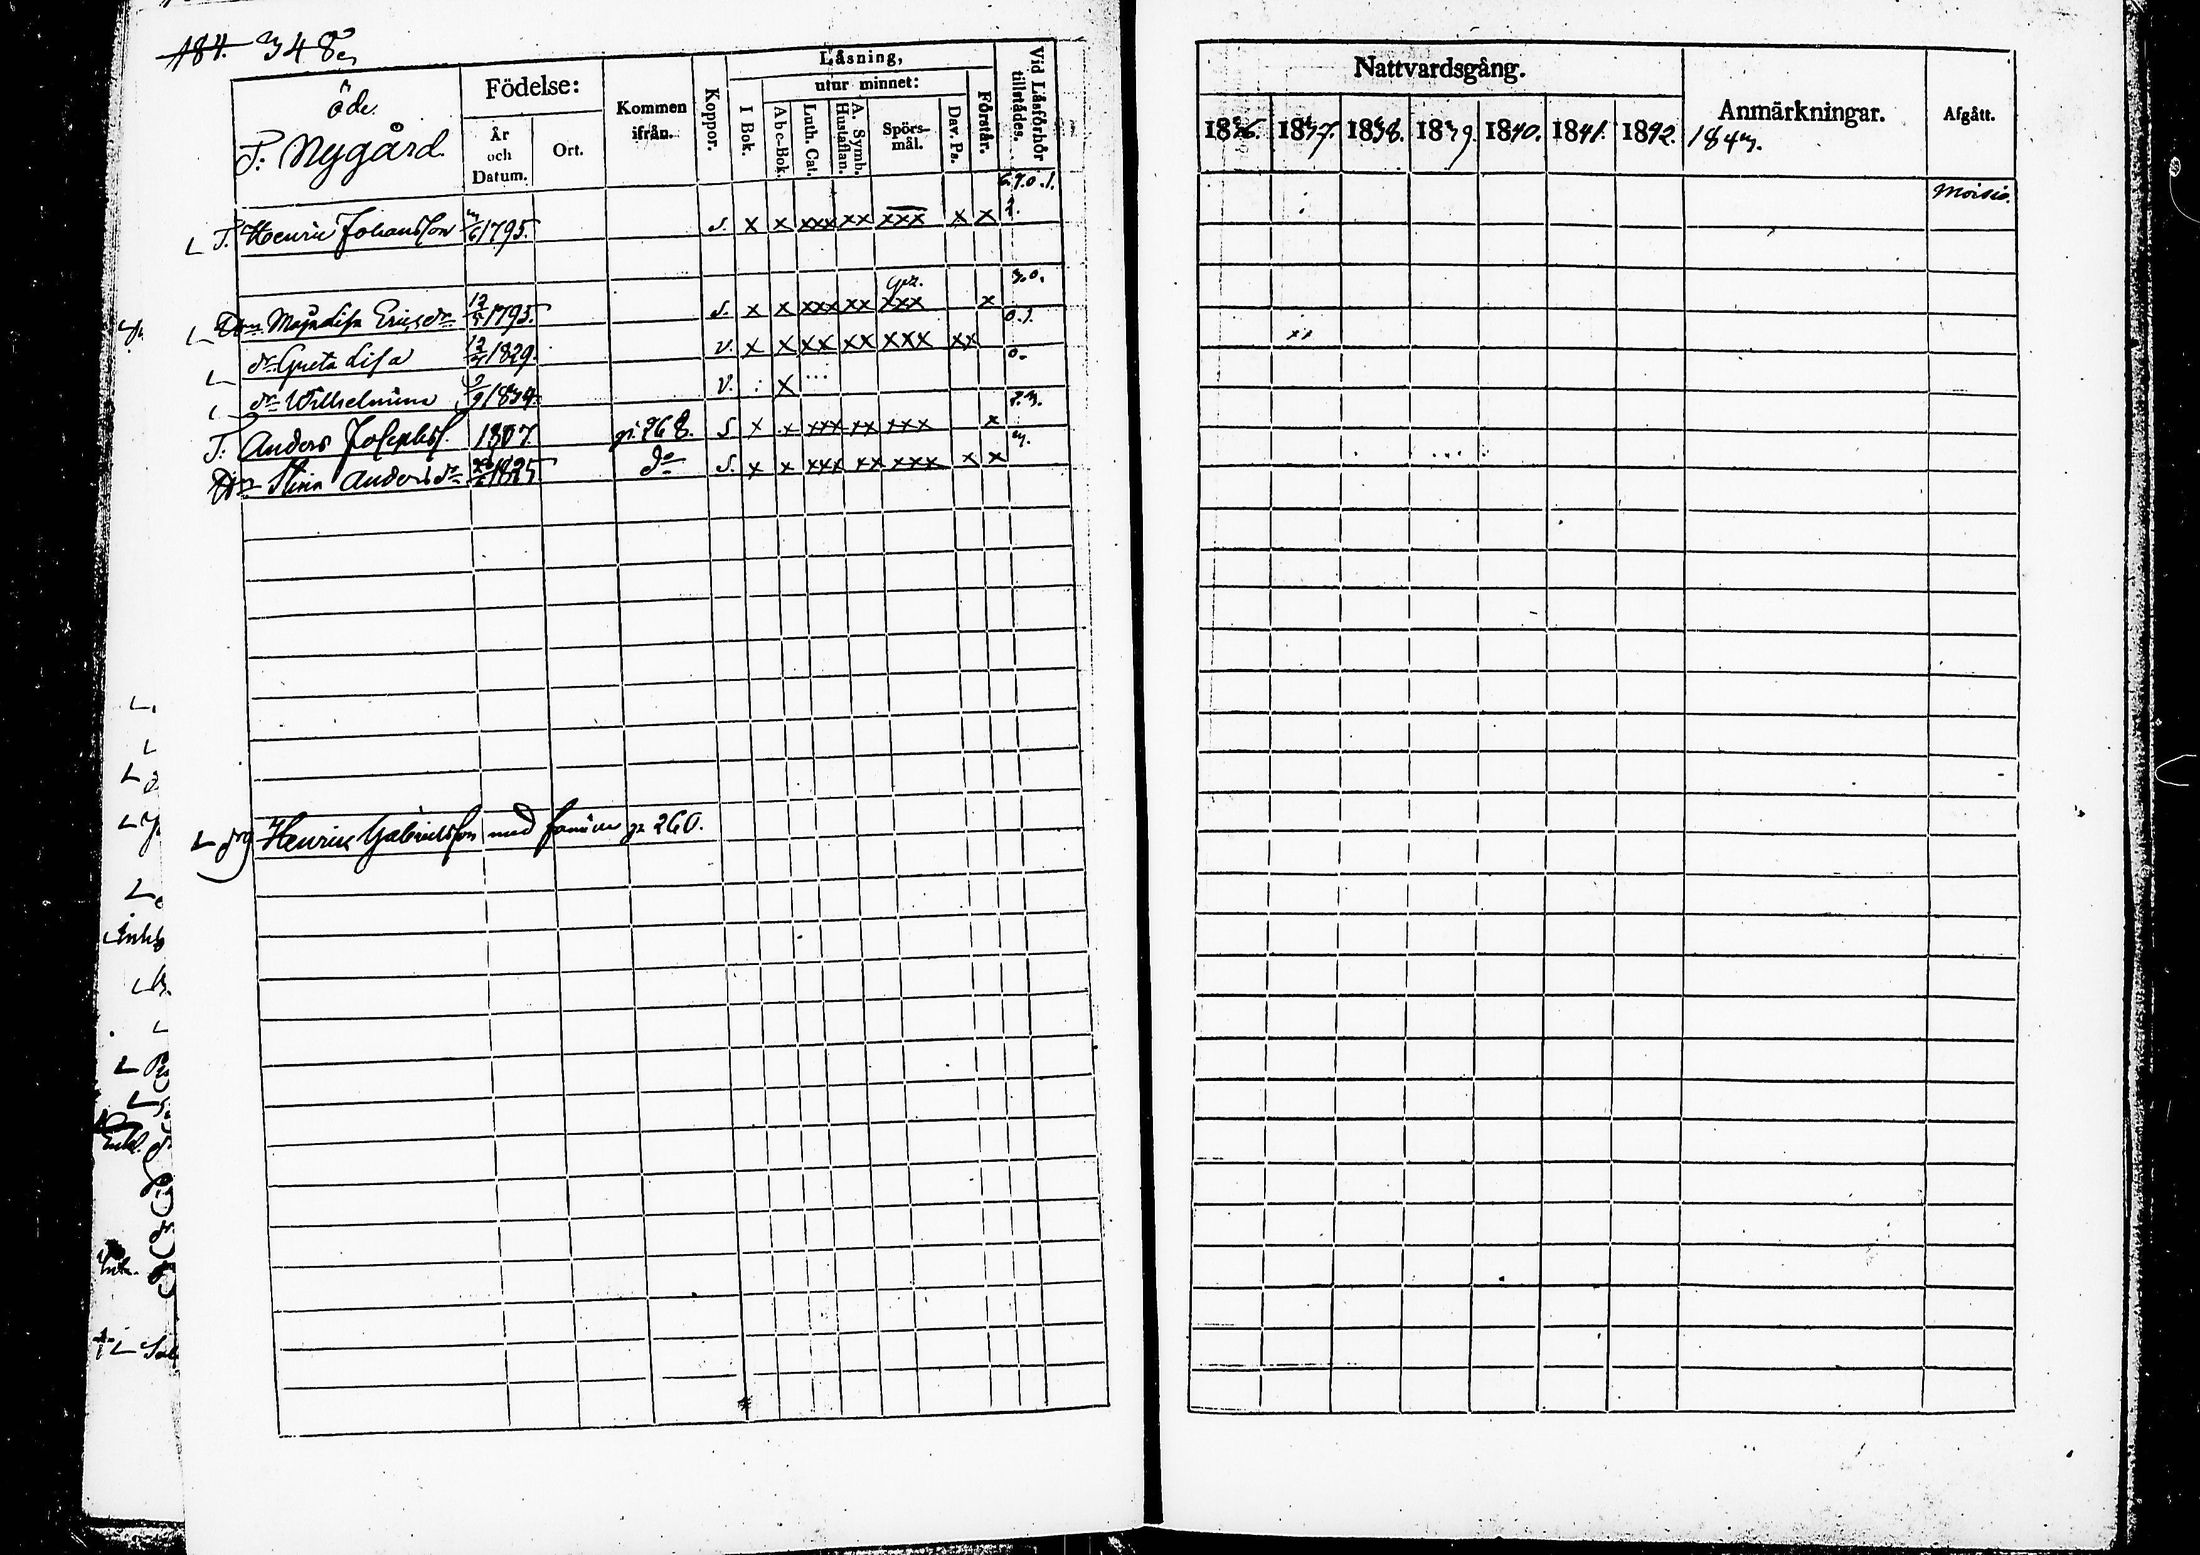 184. 348
Läsning,
öde.
Födelse:
utur minnet:
Kommen ifrån.
Koppor.
I Bok.
Abc-Bok.
Luth. Cat.
A. Symb. Hustaflan.
Spörs-mål.
Dav. Ps.
Förstår.
Vid Läsförhör tillstädes.
T: Nygård.
År och Datum.
Ort.
6.7.0.1.
2.
T. Henric Johansson 1795. s. x x xxx xx xxx x x
3.0.
Majalisa Ericsdr 12/5 1795. s. x x xxx xx xxx x
0.1.
dr Greta Lisa 1829. v. x x xx xx xxx xx
0.
dr Wilhelmina 1834. v. : x ...
T: Anders Josephss. 1807. 268. s x x xxx xx xxx x
Stina Andersdr 1825 do s. x x xxx xx xxx x x
Henric Gabrielsson med familie p. 260.
Nattvardsgång.
Anmärkningar.
Afgått.
1836. 1837. 1838. 1839. 1840. 1841. 1842. 1843.
Moisio.